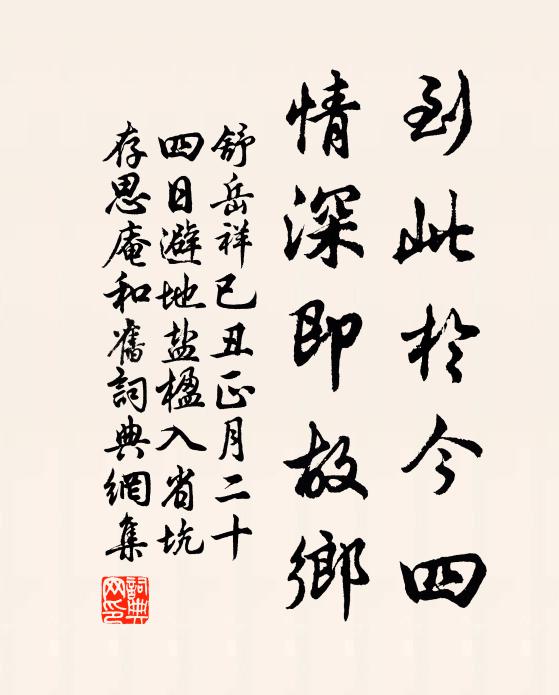 到此於今四
情深即故鄉
舒岳祥己丑正月二十
四日避地盐楹入省坑
存思庵和舊詞典網集
詞典网印